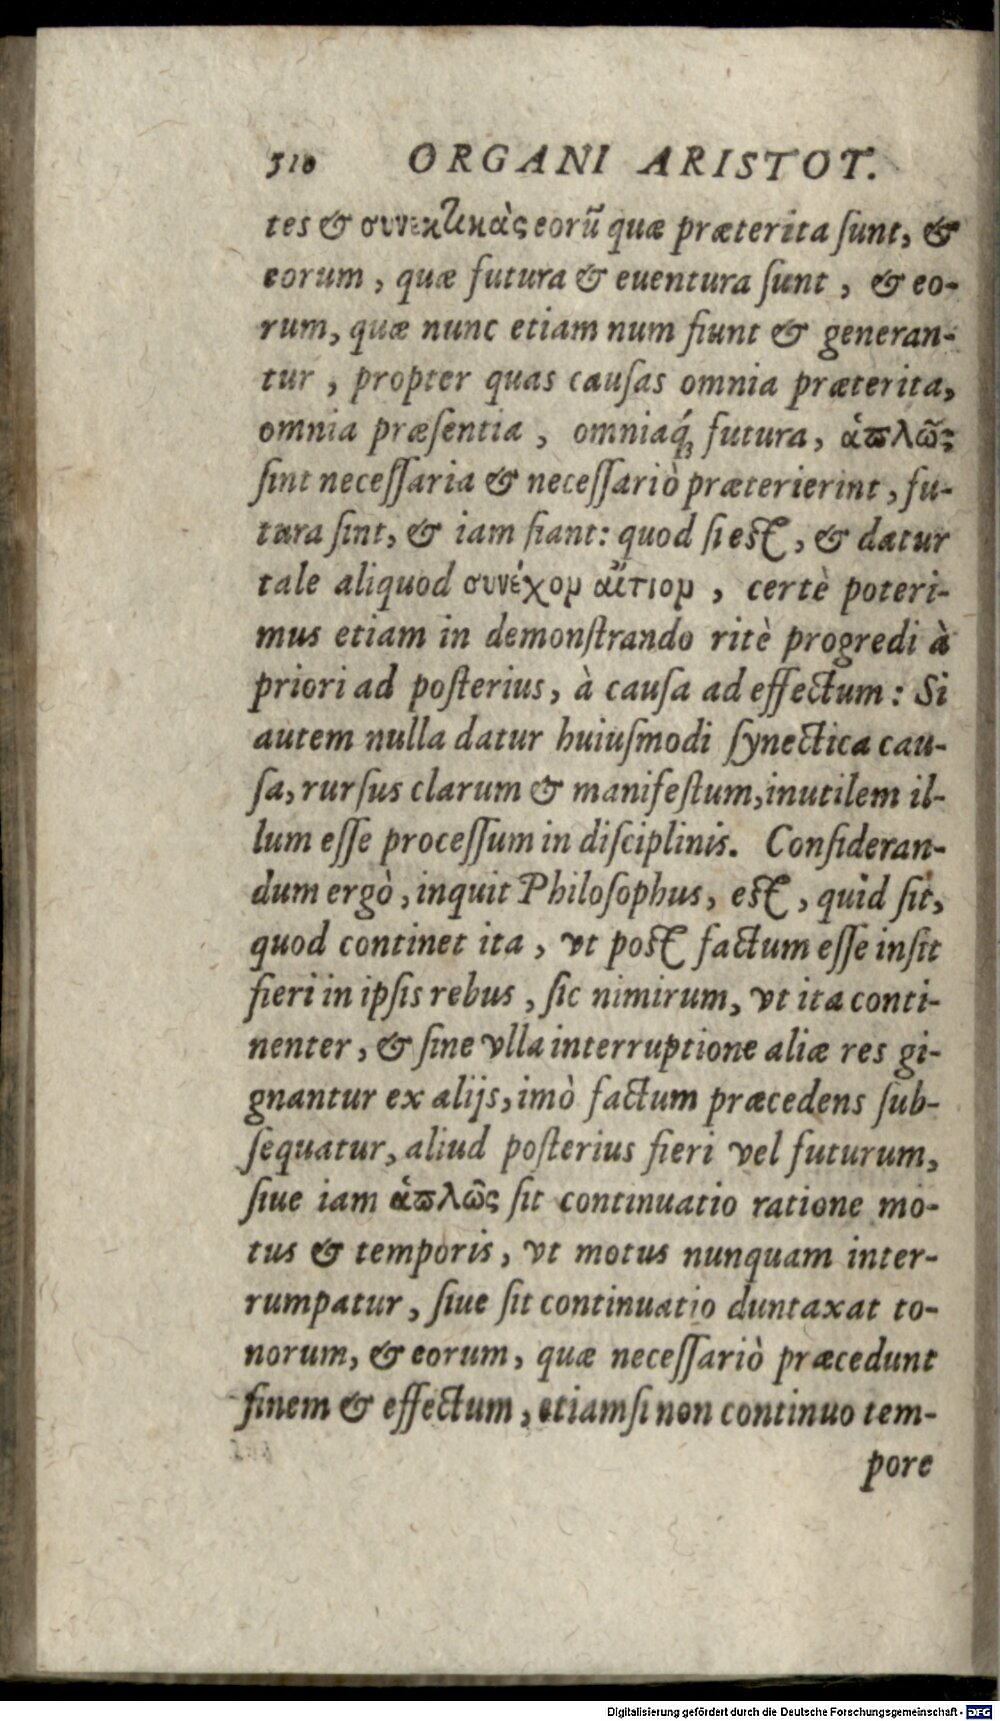 310 ORGANI ARISTOT.
tes & συνεκτικὰς eorũ quæ præterita ſunt, &
eorum, quæ futura & euentura ſunt, & eo-
rum, quæ nunc etiam num fiunt & generan-
tur, propter quas cauſas omnia præterita,
omnia præſentia, omniaq́; futura, ἁπλῶς
ſint neceſſaria & neceſſariò præterierint, fu-
tura ſint, & iam fiant: quod ſi est, & datur
tale aliquod συνέχον αἴτιον, certè poteri-
mus etiam in demonſtrando ritè progredi à
priori ad poſterius, à cauſa ad effectum: Si
autem nulla datur huiuſmodi ſynectica cau-
ſa, rurſus clarum & manifeſtum, inutilem il-
lum eſſe proceſſum in diſciplinis. Conſideran-
dum ergò, inquit Philoſophus, est, quid ſit,
quod continet ita, vt post factum eſſe inſit
fieri in ipſis rebus, ſic nimirum, vt ita conti-
nenter, & ſine vlla interruptione aliæ res gi-
gnantur ex alijs, imò factum præcedens ſub-
ſequatur, aliud poſterius fieri vel futurum,
ſiue iam ἁπλῶς ſit continuatio ratione mo-
tus & temporis, vt motus nunquam inter-
rumpatur, ſiue ſit continuatio duntaxat to-
norum, & eorum, quæ neceſſariò præcedunt
finem & effectum, etiamſi non continuo tem-
pore
Digitalisierung gefördert durch die Deutsche Forschungsgemeinschaft - DFG